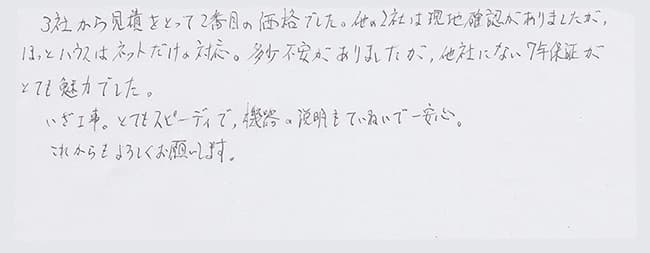 3社から見積をとって2番目の価格でした。他の2社は現地確認がありましたが,
ほっとハウスはネットだけの対応。多少不安がありましたが,他社にない7年保証が
とても魅力でした。
いざ工事。とてもスピーディで,機器の説明もていねいで一安心。
これからもよろしくお願いします。